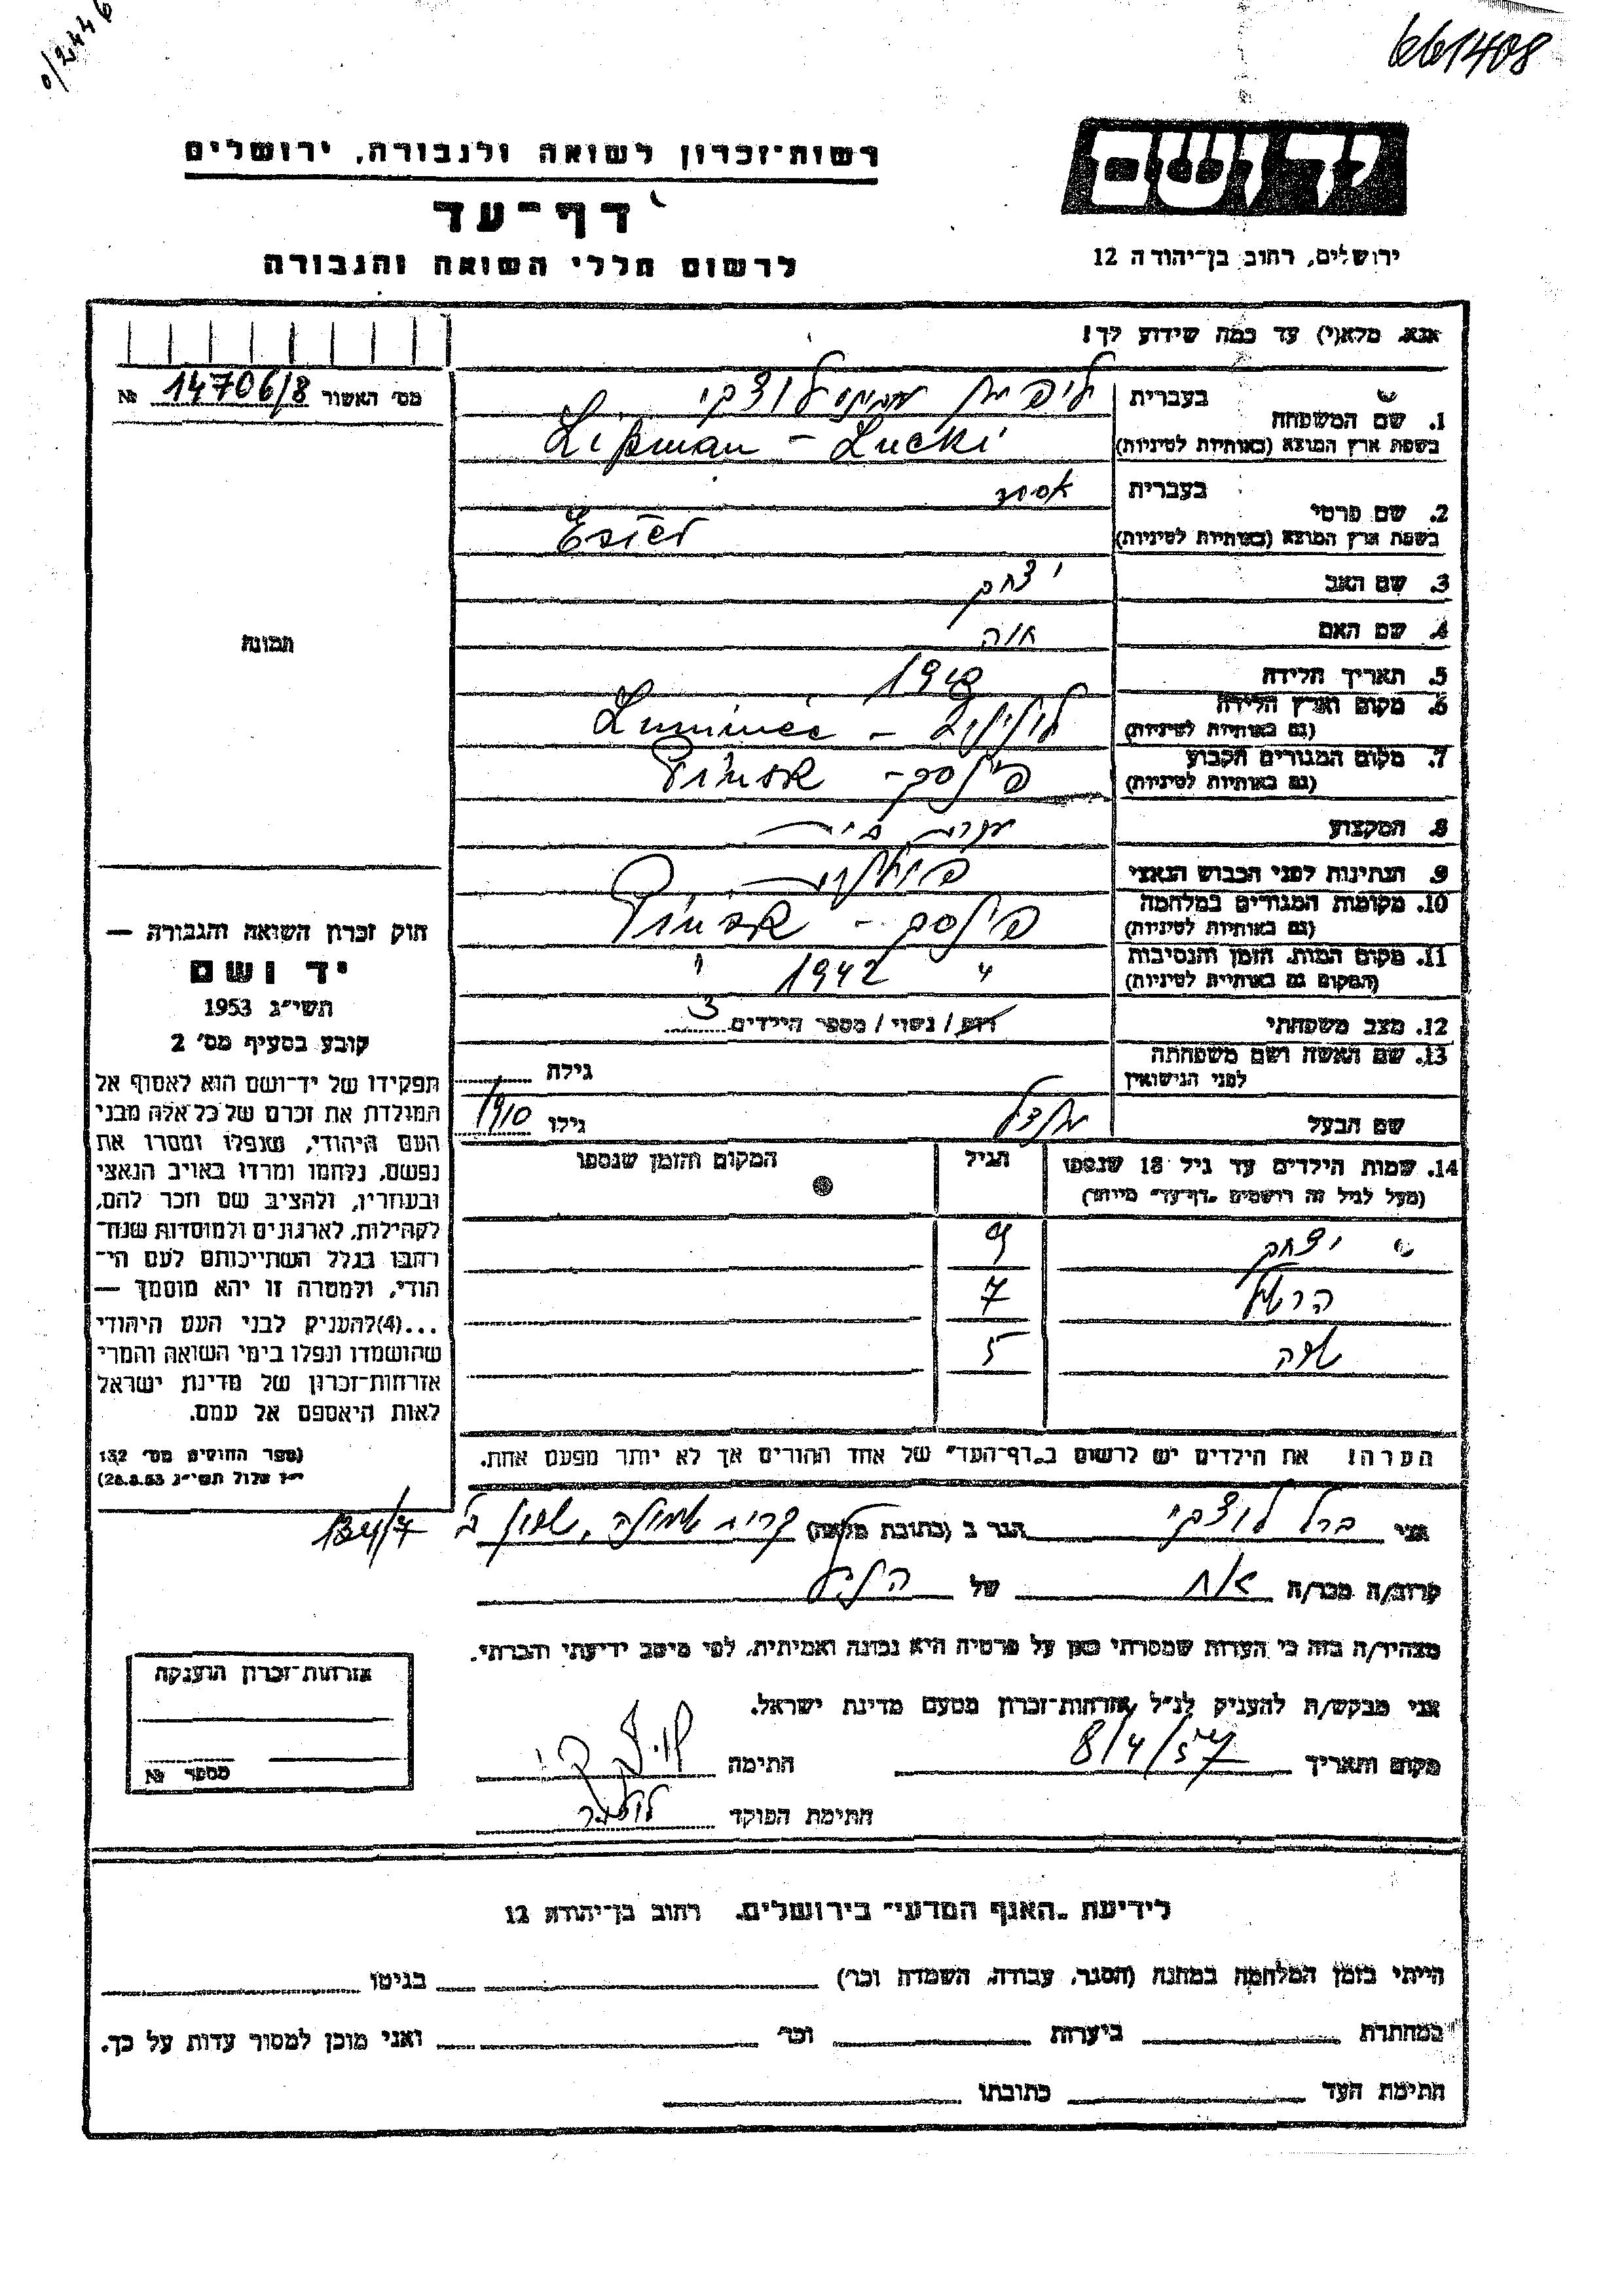 661408
0/2446
יד ושם
ירושלים, רחוב בן־יהודה 12
רשות־זכרון לשואה ולגבורה, ירושלים
דף־עד
לרשום חללי השואה והגבורה
אנא, מלא(י) עד כמה שידוע לך!
מס' האשור 14706/8 №
1. שם המשפחה
בעברית ליפמן לוצקי
בשפת ארץ המוצא (באותיות לטיניות) Lipman - Lucki
2. שם פרטי
בעברית אסתר
בשפת ארץ המוצא (באותיות לטיניות) Ester
3. שם האב יצחק
4. שם האם חוה
5. תאריך הלידה
6. מקום וארץ הלידה
(גם באותיות לטיניות)
7. מקום המגורים הקבוע
(גם באותיות לטיניות) פינסק -
8. המקצוע
9. הנתינות לפני הכבוש הנאצי
10. מקומות המגורים במלחמה
(גם באותיות לטיניות) פינסק -
11. מקום המות, הזמן והנסיבות
(המקום גם באותיות לטיניות) " 1942
12. מצב משפחתי רוק / נשוי / מספר הילדים 3
13. שם האשה ושם משפחתה
לפני הנישואין
גילה
שם הבעל
גילו 1910
14. שמות הילדים עד גיל 18 שנספו
(מעל לגיל זה רושמים „דף־עד" מיוחד)
הגיל
המקום והזמן שנספו
יצחק 9
7
5
הערה! את הילדים יש לרשום ב„דף־העד" של אחד ההורים אך לא יותר מפעם אחת.
תמונה
חוק זכרון השואה והגבורה —
יד ושם
תשי"ג 1953
קובע בסעיף מס' 2
תפקידו של יד־ושם הוא לאסוף אל
המולדת את זכרם של כל אלה מבני
העם היהודי, שנפלו ומסרו את
נפשם, נלחמו ומרדו באויב הנאצי
ובעוזריו, ולהציב שם וזכר להם,
לקהילות, לארגונים ולמוסדות שנח־
רבו בגלל השתייכותם לעם הי־
הודי, ולמטרה זו יהא מוסמך —
...(4) להעניק לבני העם היהודי
שהושמדו ונפלו בימי השואה והמרי
אזרחות־זכרון של מדינת ישראל
לאות היאספם אל עמם.
(ספר החוקים מס' 132
י"ז אלול תשי"ג 28.8.53)
אני ברל לוצקי הגר ב (כתובת מלאה) קרית שמולה, שכון ב' 134/7
קרוב/ה מכר/ה אח של הנ"ל
מצהיר/ה בזה כי העדות שמסרתי כאן על פרטיה היא נכונה ואמיתית, לפי מיטב ידיעתי והכרתי.
אני מבקש/ת להעניק לנ"ל אזרחות־זכרון מטעם מדינת ישראל.
מקום ותאריך 8/4/57 חתימה לוצקי
חתימת הפוקד
אזרחות־זכרון הוענקה
מספר №
לידיעת „האגף המדעי" בירושלים, רחוב בן־יהודה 12
הייתי בזמן המלחמה במחנה (הסגר, עבודה, השמדה וכו') בגיטו
במחתרת ביערות וכו' ואני מוכן למסור עדות על כך.
חתימת העד כתובתו